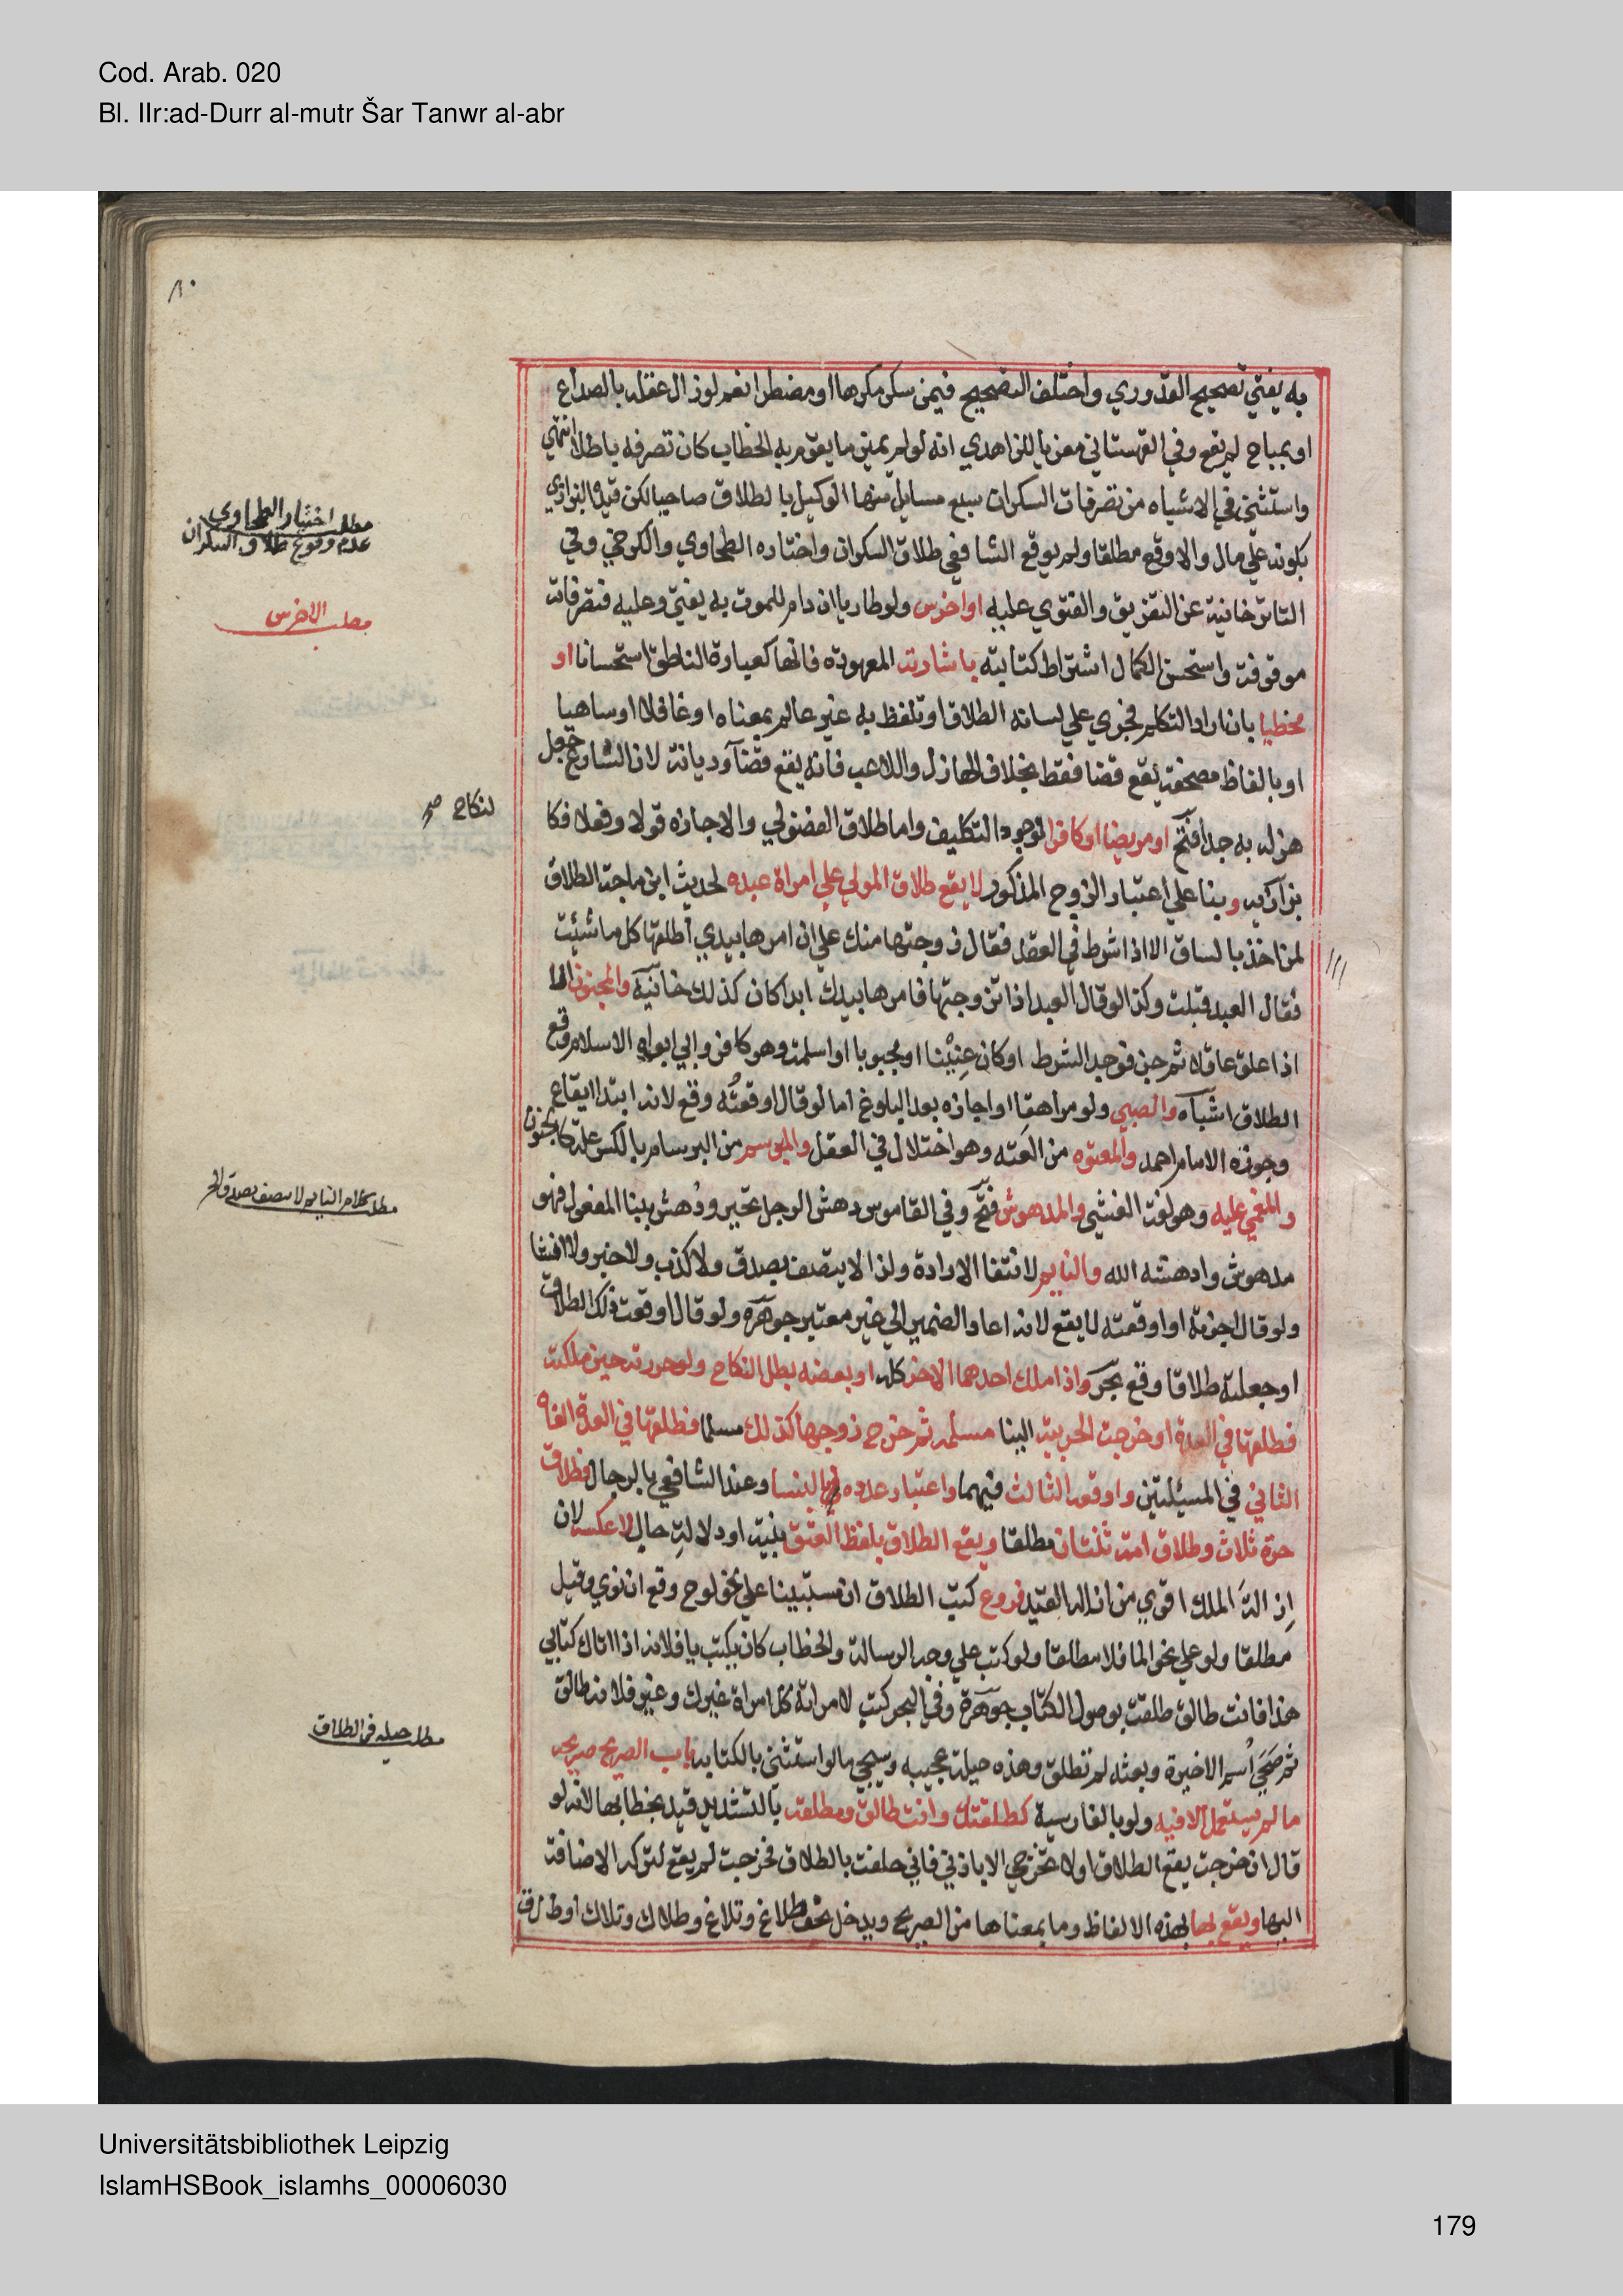 Cod. Arab. 020
Bl. IIr:ad-Durr al-mutr Šar Tanwr al-abr
به يفتي تصحيح القدوري واختلف التصحيح فيمن سكر مكرها او مضطرا نعم لو زال عقله بالصداع
او بمباح لم يقع وفي القهستاني معزيا للزاهدي انه لو لم يميز ما يقوم به الخطاب كان تصرفه باطلا انتهي
واستثني في الاشباه من تصرفات السكران سبع مسايل منها الوكيل بالطلاق صاحيا لكن قيده البزازي
بكونه علي مال والا وقع مطلقا ولم يوقع الشافعي طلاق السكران واختاره الطحاوي والكرخي وفي
التاتر خانية عن التفريق والفتوي عليه او اخرس ولو طاريا ان دام للموت به يفتي وعليه فتصرفاته
موقوفة واستحسن الكمال اشتراط كتابته باشارته المعهودة فانها كعبارة الناطق استحسانا او
مخطيا بان اراد التكلم فجري علي لسانه الطلاق او تلفظ به غير عالم بمعناه او غافلا او ساهيا
او بالفاظ مصحفة يقع قضا فقط بخلاف الهازل واللاعب فانه يقع قضآ وديانة لان الشارع جعل
هزله به جدا فتح او مريضا او كافرا لوجود التكليف واما طلاق الفضولي والاجازة قولا وفعلا فكا
لنكاح صح
بزازيه وبنا علي اعتبار الزوج المذكور لا يقع طلاق المولي علي امراة عبده لحديث ابن ماجة الطلاق
لمن اخذ بالساق الا اذا شرط في العقد فقال زوجتها منك علي ان امرها بيدي اطلقها كل ما شئت
فقال العبد قبلت وكذا لو قال العبد اذا تزوجتها فامرها بيدك ابدا كان كذلك خانية والمجنون الا
اذا علق عاقلا ثم جن فوجد الشرط او كان عنينا او مجبوبا او اسلمت وهو كافر وابي ابواه الاسلام وقع
الطلاق اشباه والصبي ولو مراهقا او اجازه بعد البلوغ اما لو قال اوقعته وقع لانه ابتدا ايقاع
وجوزه الامام احمد والمعتوه من العته وهو اختلال في العقل والمبرسم من البرسام بالكسر علة كالجنون
والمغمي عليه وهو لغة الغشي والمدهوش فتح وفي القاموس دهش الرجل تحير ودهش ببنا المفعول فهو
مدهوش وادهشه الله والنايم لانتفا الارادة ولذا لا يتصف بصدق ولا كذب ولا خبر ولا انشا
ولو قال اجزته او اوقعته لا يقع لانه اعاد الضمير الي غير معتبر جوهرة ولو قال اوقعت ذلك الطلاق
او جعلته طلاقا وقع بحر واذا ملك احدهما الاخر كله او بعضه بطل النكاح ولو حررته حين ملكته
فطلقها في العدة او خرجت الحربية الينا مسلمة ثم خرج زوجها كذلك مسلما فطلقها في العدة الغاه
الثاني في المسئلتين واوقعه الثالث فيهما واعتبار عدده بالنسا وعند الشافعي بالرجال فطلاق
حرة ثلاث وطلاق امة ثنتان مطلقا ويقع الطلاق بلفظ العتق بنية او دلالة حال لا عكسه لان
ازالة الملك اقوي من ازالة القيد فروع كتب الطلاق ان مستبينا علي نحو لوح وقع ان نوي وقيل
مطلقا ولو علي نحو الما فلا مطلقا ولو كتب علي وجه الرسالة والخطاب كان يكتب يا فلانه اذا اتاك كتابي
هذا فانت طالق طلقت بوصول الكتاب جوهرة وفي البحر كتب لامراته كل امراة غيرك وغير فلانة طالق
ثم محي اسم الاخيرة وبعثه لم تطلق وهذه حيلة عجيبه وسيجي مالو استثني بالكتابه باب الصريح صريحه
ما لم يستعمل الا فيه ولو بالفارسية كطلقتك وانت طالق ومطلقة بالتشديد قيد بخطابها لانه لو
قال ان خرجت يقع الطلاق او لا تخرجي الا باذني فاني حلفت بالطلاق فخرجت لم يقع لتركه الاضافة
اليها ويقع بها بهذه الالفاظ وما بمعناها من الصريح ويدخل نحو طلاغ وتلاغ وطلاك وتلاك او ط ل ق
مطلب اختيار الطحاوي
عدم وقوع طلاق السكران
مطلب الاخرس
مطلب كلام النايم لا يتصف بصدق الخ
مطلب حيله في الطلاق
Universitätsbibliothek Leipzig
IslamHSBook_islamhs_00006030
179